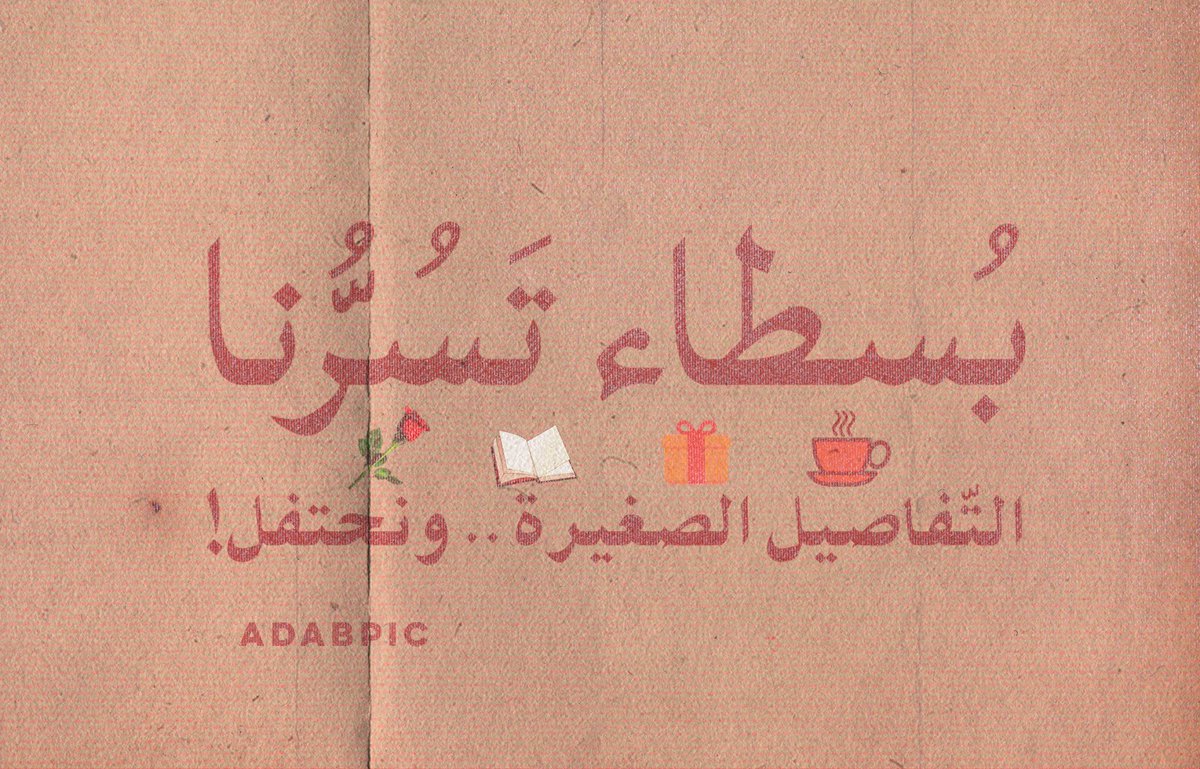 بُسطاء تَسُرُّنا
التّفاصيل الصغيرة .. ونحتفل!
ADABPIC